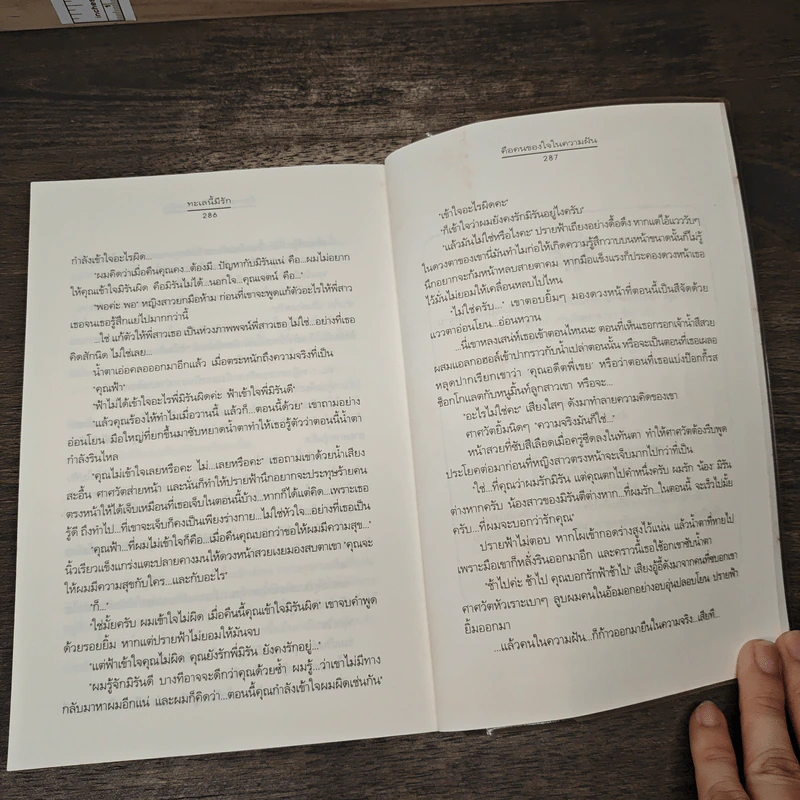 ทะเลนี้มีรัก
286
กำลังเข้าใจอะไรผิด...
"ผมคิดว่าเมื่อคืนคุณคง...ต้องมี...ปัญหากับมิรันแน่ คือ...ผมไม่อยาก
ให้คุณเข้าใจมิรันผิด คือมิรันไม่ได้...นอกใจ...คุณเจตน์ คือ..."
"พอค่ะ พอ" หญิงสาวยกมือห้าม ก่อนที่เขาจะพูดแก้ตัวอะไรให้พี่สาว
เธอจนเธอรู้สึกแย่ไปมากกว่านี้
...ใช่ แก้ตัวให้พี่สาวเธอ เป็นห่วงภาพพจน์พี่สาวเธอ ไม่ใช่...อย่างที่เธอ
คิดสักนิด ไม่ใช่เลย...
น้ำตาเอ่อคลอออกมาอีกแล้ว เมื่อตระหนักถึงความจริงที่เป็น
"คุณฟ้า"
"ฟ้าไม่ได้เข้าใจอะไรพี่มิรันผิดค่ะ ฟ้าเข้าใจพี่มิรันดี"
"แล้วคุณร้องไห้ทำไมเมื่อวานนี้ แล้วก็...ตอนนี้ด้วย" เขาถามอย่าง
อ่อนโยน มือใหญ่ที่ยกขึ้นมาซับหยาดน้ำตาทำให้เธอรู้ตัวว่าตอนนี้น้ำตา
กำลังรินไหล
"คุณไม่เข้าใจเลยหรือคะ ไม่...เลยหรือคะ" เธอถามเขาด้วยน้ำเสียง
สะอื้น ศาศวัตส่ายหน้า และนั่นก็ทำให้ปรายฟ้านึกอยากจะประทุษร้ายคน
ตรงหน้าให้ได้เจ็บเหมือนที่เธอเจ็บในตอนนี้บ้าง...หากก็ได้แต่คิด...เพราะเธอ
รู้ดี ถึงทำไป...ที่เขาจะเจ็บก็คงเป็นเพียงร่างกาย...ไม่ใช่หัวใจ...อย่างที่เธอเป็น
"คุณฟ้า...ที่ผมไม่เข้าใจก็คือ...เมื่อคืนคุณบอกว่าขอให้ผมมีความสุข..."
นิ้วเรียวแข็งแกร่งแตะปลายคางมนให้ดวงหน้าสวยเงยมองสบตาเขา "คุณจะ
ให้ผมมีความสุขกับใคร...และกับอะไร"
"ก็..."
"ใช่มั้ยครับ ผมเข้าใจไม่ผิด เมื่อคืนนี้คุณเข้าใจมิรันผิด" เขาจบคำพูด
ด้วยรอยยิ้ม หากแต่ปรายฟ้าไม่ยอมให้มันจบ
"แต่ฟ้าเข้าใจคุณไม่ผิด คุณยังรักพี่มิรัน ยังคงรักอยู่..."
"ผมรู้จักมิรันดี บางทีอาจจะดีกว่าคุณด้วยซ้ำ ผมรู้...ว่าเขาไม่มีทาง
กลับมาหาผมอีกแน่ และผมก็คิดว่า...ตอนนี้คุณกำลังเข้าใจผมผิดเช่นกัน"
คือคนของใจในความฝัน
287
"เข้าใจอะไรผิดคะ"
"ก็เข้าใจว่าผมยังคงรักมิรันอยู่ไงครับ"
"แล้วมันไม่ใช่หรือไงคะ" ปรายฟ้าเถียงอย่างดื้อดึง หากแต่ไอ้แวววับๆ
ในดวงตาของเขานี่มันทำไมก่อให้เกิดความรู้สึกวาบบนหน้าขนาดนั้นก็ไม่รู้
นึกอยากจะก้มหน้าหลบสายตาคม หากมือแข็งแรงก็ประคองดวงหน้าเธอ
ไว้มั่นไม่ยอมให้เคลื่อนหลบไปไหน
"ไม่ใช่ครับ..." เขาตอบยิ้มๆ มองดวงหน้าที่ตอนนี้เป็นสีจัดด้วย
แววตาอ่อนโยน...อ่อนหวาน
...นี่เขาหลงเสน่ห์เธอเข้าตอนไหนนะ ตอนที่เห็นเธอกรอกเจ้าน้ำสีสวย
ผสมแอลกอฮอล์เข้าปากราวกับน้ำเปล่าตอนนั้น หรือจะเป็นตอนที่เธอเผลอ
หลุดปากเรียกเขาว่า 'คุณอดีตพี่เขย' หรือว่าตอนที่เธอแบ่งป๊อกกี้รส
ช็อกโกแลตกับหนูมิ้นท์ลูกสาวเขา หรือจะ...
"อะไรไม่ใช่คะ" เสียงใสๆ ดังมาทำลายความคิดของเขา
ศาศวัตยิ้มนิดๆ "ความจริงมันก็ใช่..."
หน้าสวยที่ซับสีเลือดเมื่อครู่ซีดลงในทันตา ทำให้ศาศวัตต้องรีบพูด
ประโยคต่อมาก่อนที่หญิงสาวตรงหน้าจะเจ็บมากไปกว่าที่เป็น
"ใช่...ที่คุณว่าผมรักมิรัน แต่คุณตกไปคำหนึ่งครับ ผมรัก น้อง มิรัน
ต่างหากครับ น้องสาวของมิรันดีต่างหาก...ที่ผมรัก...ในตอนนี้ จะเร็วไปมั้ย
ครับ...ที่ผมจะบอกว่ารักคุณ"
ปรายฟ้าไม่ตอบ หากโผเข้ากอดร่างสูงไว้แน่น แล้วน้ำตาที่หายไป
เพราะมือเขาก็หลั่งรินออกมาอีก และคราวนี้เธอใช้อกเขาซับน้ำตา
"ช้าไปค่ะ ช้าไป คุณบอกรักฟ้าช้าไป" เสียงอู้อี้ดังมาจากคนที่ซบอกเขา
ศาศวัตหัวเราะเบาๆ ลูบผมคนในอ้อมอกอย่างอบอุ่นปลอบโยน ปรายฟ้า
ยิ้มออกมา
...แล้วคนในความฝัน...ก็ก้าวออกมายืนในความจริง...เสียที...